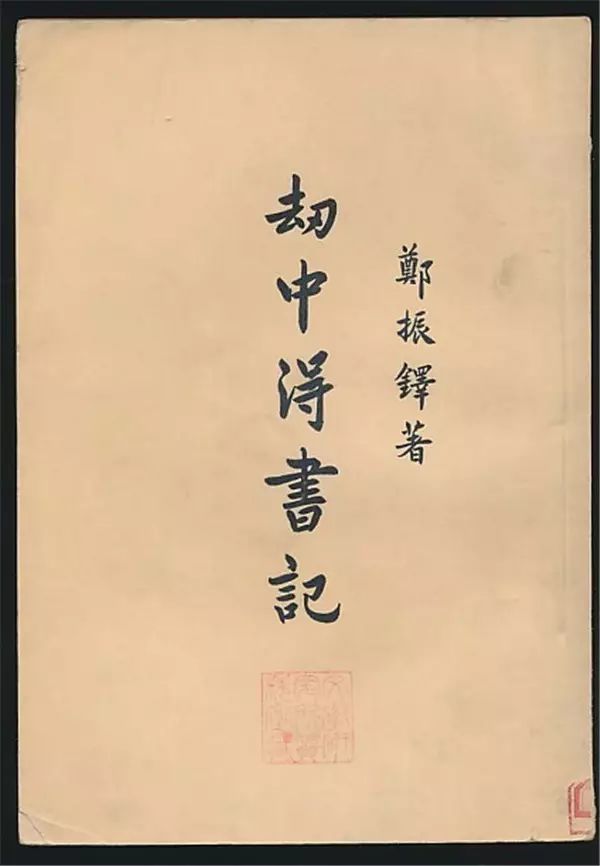 鄭振鐸著
刼中淂書記